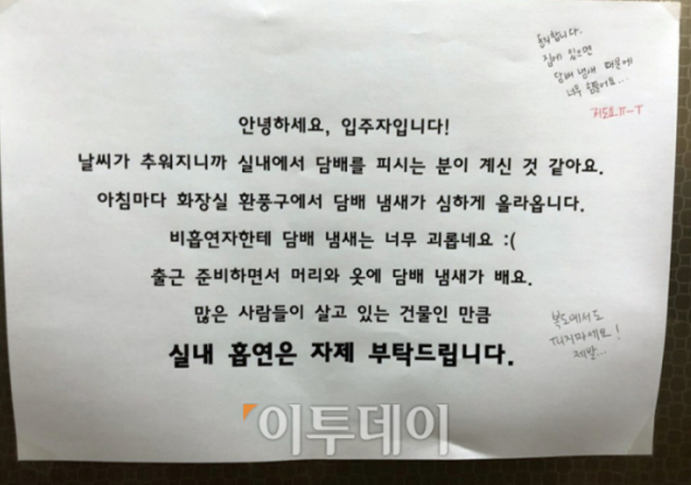 동의합니다.
집에 있으면
담배 냄새 때문에
너무 힘들어요...
저도요 ㅠ-ㅜ
안녕하세요, 입주자입니다!
날씨가 추워지니까 실내에서 담배를 피시는 분이 계신 것 같아요.
아침마다 화장실 환풍구에서 담배 냄새가 심하게 올라옵니다.
비흡연자한테 담배 냄새는 너무 괴롭네요 :(
출근 준비하면서 머리와 옷에 담배 냄새가 배요.
많은 사람들이 살고 있는 건물인 만큼
실내 흡연은 자제 부탁드립니다.
복도에서도
피지마세요!
제발...
이투데이